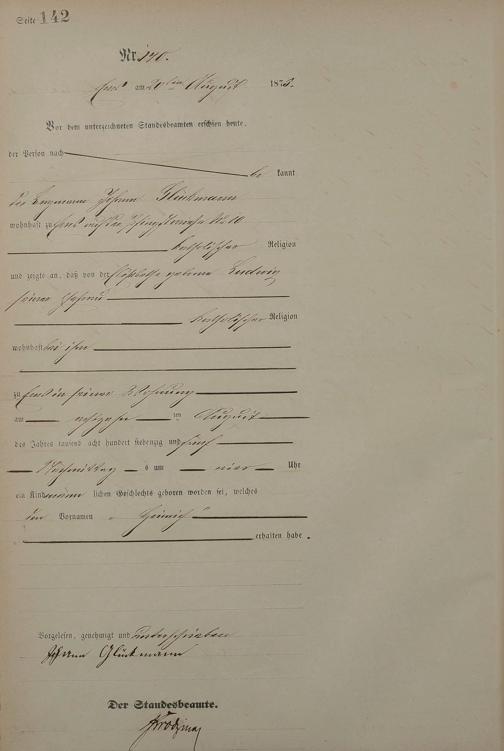 Seite 142
Nr. 140.
Ems am 20ten August 1875.
Vor dem unterzeichneten Standesbeamten erschien heute,
der Person nach be kannt
der Bergmann Johann Glückmann
wohnhaft zu Ems No 10
katholischer Religion
und zeigte an, daß von der Elisabetha geborene Ludwig
seiner Ehefrau
katholischer Religion
wohnhaft bei ihm
zu Ems in seiner Wohnung
am achtzehn ten August
des Jahres tausend acht hundert siebenzig und fünf
Nachmittag s um vier Uhr
ein Kind männ lichen Geschlechts geboren worden sei, welches
den Vornamen Heinrich
erhalten habe.
Vorgelesen, genehmigt und unterschrieben
Johann Glückmann
Der Standesbeamte.